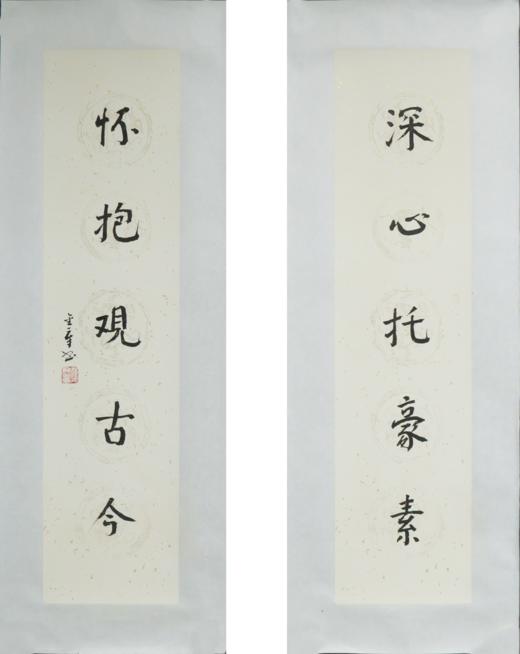 深心托豪素
怀抱观古今